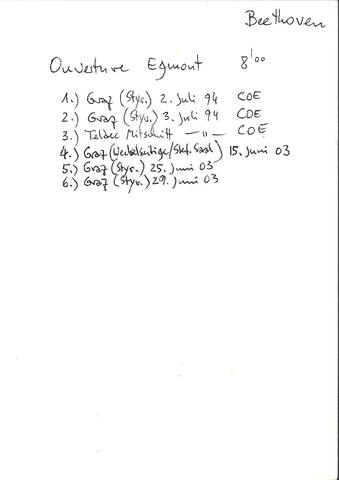 Beethoven
Ouverture Egmont 8'00
1.) Graz (Styr.) 2. Juli 94 COE
2.) Graz (Styr.) 3. Juli 94 COE
3.) Teldec Mitschnitt — " — COE
4.) Graz (/Stef. Saal) 15. Juni 03
5.) Graz (Styr.) 25. Juni 03
6.) Graz (Styr.) 29. Juni 03